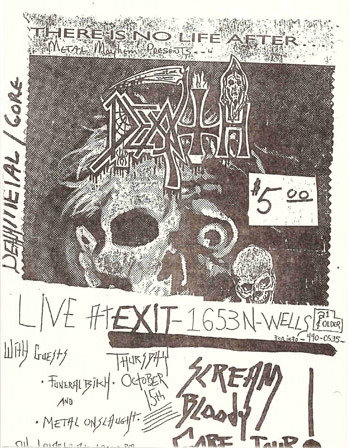 THERE IS NO LIFE AFTER...
METAL MAYHEM PRESENTS...
DEATH
DEATHMETAL/GORE
$5.00
LIVE At EXIT-1653 N-WELLS
21 & OLDER
With GUESTS
• FUNERAL BITCH•
AND
• METAL ONSLAUGHT•
THURSDAY
OCTOBER
15th
SCREAM
Bloody
GORE TOUR!